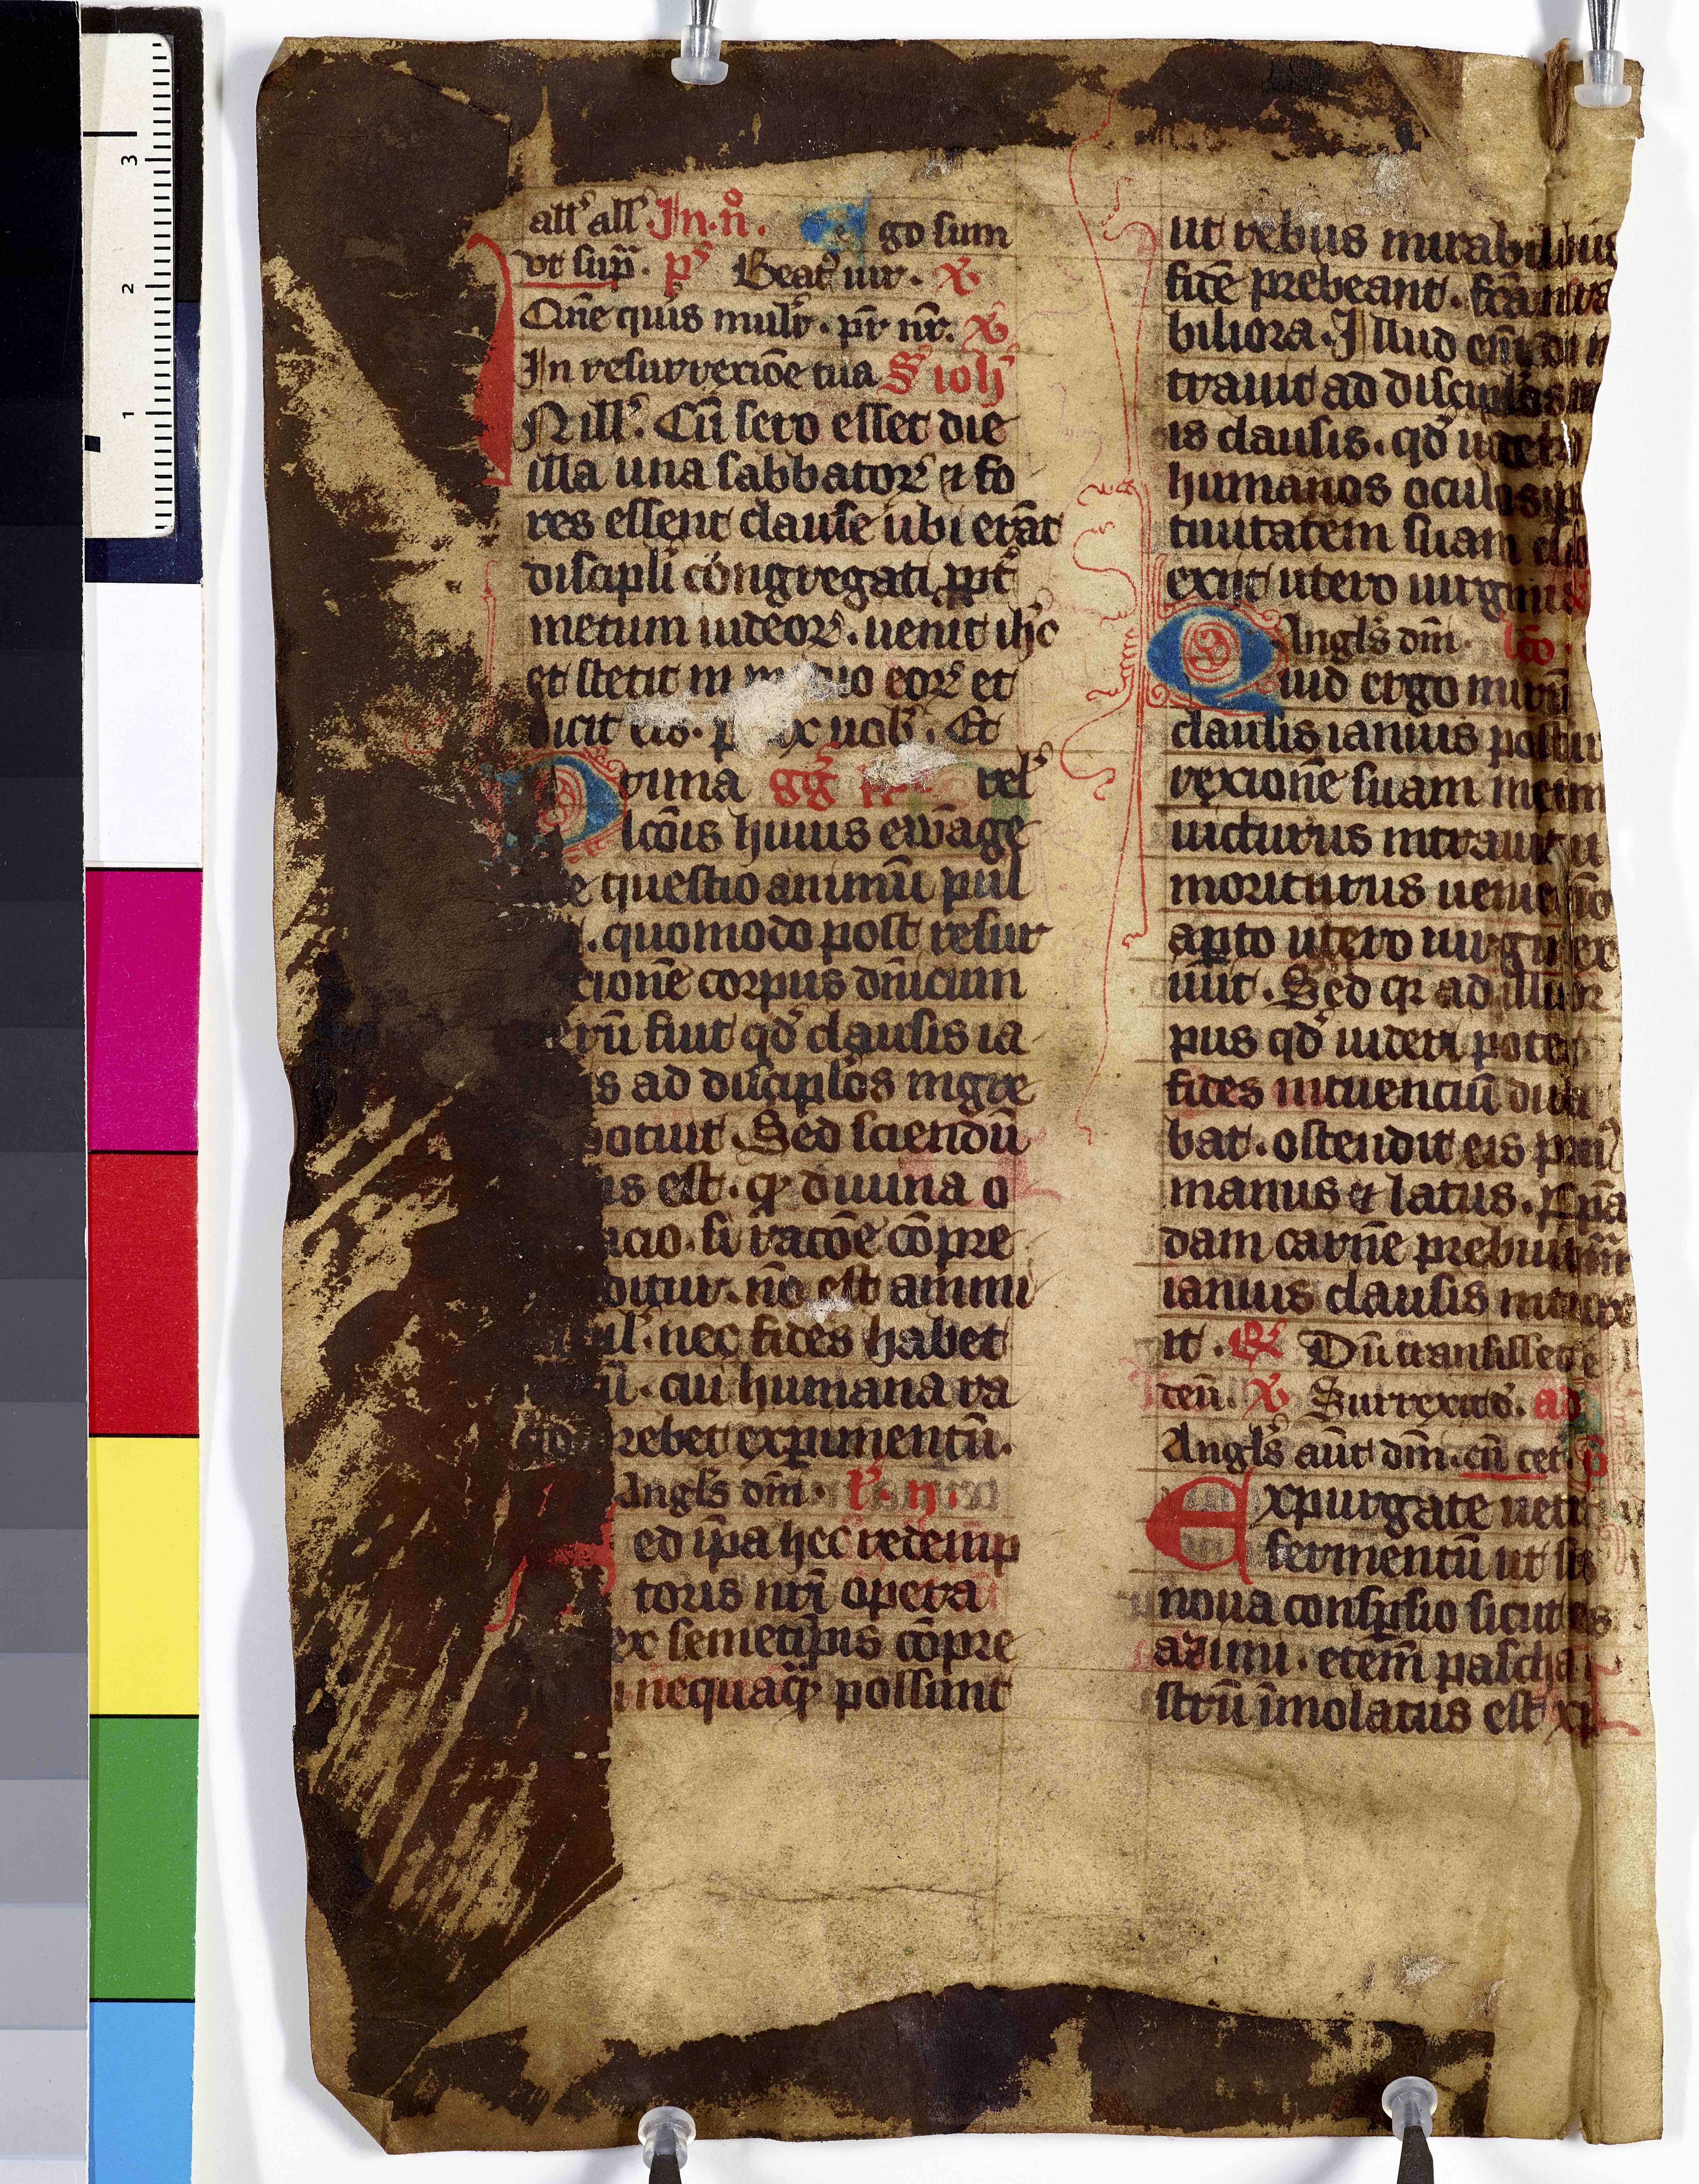 all᷒ all᷒ In.n̊. Ego sum
vt sup̄. p᷒ Beat᷒ uir. v̾
Om̄e quis mult᷒. pr̄ nr̄. v̾
In resurrexiōe tua S᷒ ioh᷒
N ill᷒. Cū sero esset die
illa una sabbatoꝝ ⁊ fo
res essent clause ubi erāt
discipli congregati ꝓpt᷒
metum iudeoꝝ. uenit ih᷒c
et stetit in medio eoꝝ et
dicit eis. pax uob᷒. Et
Prima gg᷒ rel᷒
lcōis huius ewāge
questio animū pul
. quomodo post resur
cionē corpus dn̄icum
erū fuit qd᷒ clausis ia
is ad discipl᷒os ingre
potuit. Sed sciendū
is est. ꝙ diuina o
acio. si racōe cōpre
ditur. nō est ammi
il᷒. nec fides habet
ū. cui humana ra
cio prebet exꝑimentū.
Angl᷒s dn̄i. r᷒. ij.
Sed ip̄a hec redemp
toris nr̄i opera
ex semetip̄is cōpre
nequaꝙ possunt
ut rebus mirabilibus
fidē prebeant. fc̄a mira
biliora. Illud enī
trauit ad discipl᷒os
is clausis. qd᷒ uideli
humanos oculos
tiuitatem suam clauso
exiit utero uirginis
Angl᷒s dn̄i. lc̄o.
Quid ergo mirū
clausis ianuis post
rexionē suam in
uicturus intrauit
moriturus ueniens
apto utero uirgi ex
iuit. Sed qꝛ ad illud
pus qd᷒ uideri poterat
fides intuenciū dubita
bat. ostendit eis p
manus ⁊ latus. Palpa
dam carnē prebuit
ianuis clausis introx
it. R᷒ Dū transisset
ben̄. v̾ Surrexit d. ad
Angl᷒s aūt dn̄i. cū cet᷒. p̄
Expurgate uetus
fermentū ut sis
noua consꝑsio sicut es
azimi. etem̄ pascha
strū īmolatus est xp